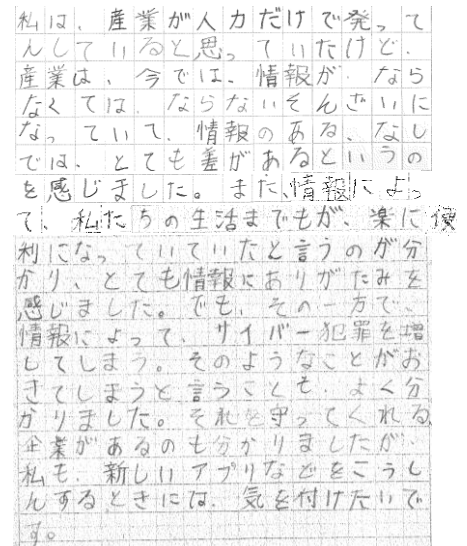 私は、産業が人力だけで発って
んしていいると思っていたけど、
産業は、今では、情報が、なら
なくては、ならないそんざいに
なっていて、情報のある、なし
では、とても差があるというの
を感じました。また、情報によっ
て、私たちの生活までもが、楽に便
利になっていていたと言うのが分
かり、とても情報にありがたみを
感じました。でも、その一方で、
情報によって、サイバー犯罪を増
してしまう。そのようなことがお
きてしまうと言うことも、よく分
かりました。それを守ってくれる、
企業があるのも分かりましたが、
私も、新しいアプリなどをこうし
んするときには、気を付けたいで
す。